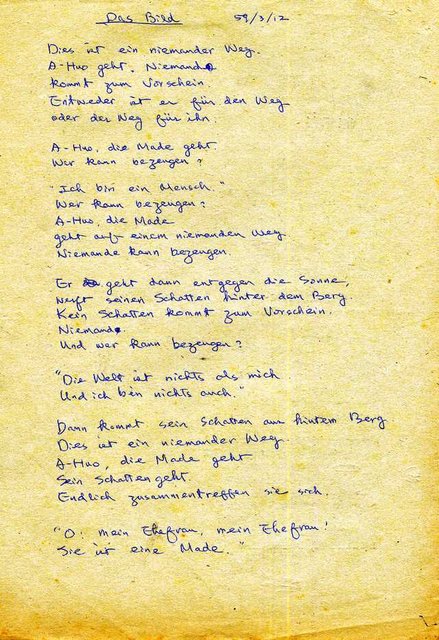 Das Bild 59/3/12
Dies ist ein niemander Weg.
A-Huo geht. Niemand
kommt zum Vorschein.
Entweder ist er für den Weg
oder der Weg für ihn.
A-Huo, die Made geht
Wer kann bezeugen?
"Ich bin ein Mensch."
Wer kann bezeugen?
A-Huo, die Made
geht auf einem niemanden Weg.
Niemande kann bezeugen.
Er geht dann entgegen die Sonne,
werft seinen Schatten hinter dem Berg.
Kein Schatten kommt zum Vorschein.
Niemand.
Und wer kann bezeugen?
"Die Welt ist nichts als mich
Und ich bin nichts auch."
Dann kommt sein Schatten am hintem Berg
Dies ist ein niemander Weg.
A-Huo, die Made geht
Sein Schatten geht.
Endlich zusammentreffen sie sich.
"O! mein Ehefrau, mein Ehefrau!
Sie ist eine Made."